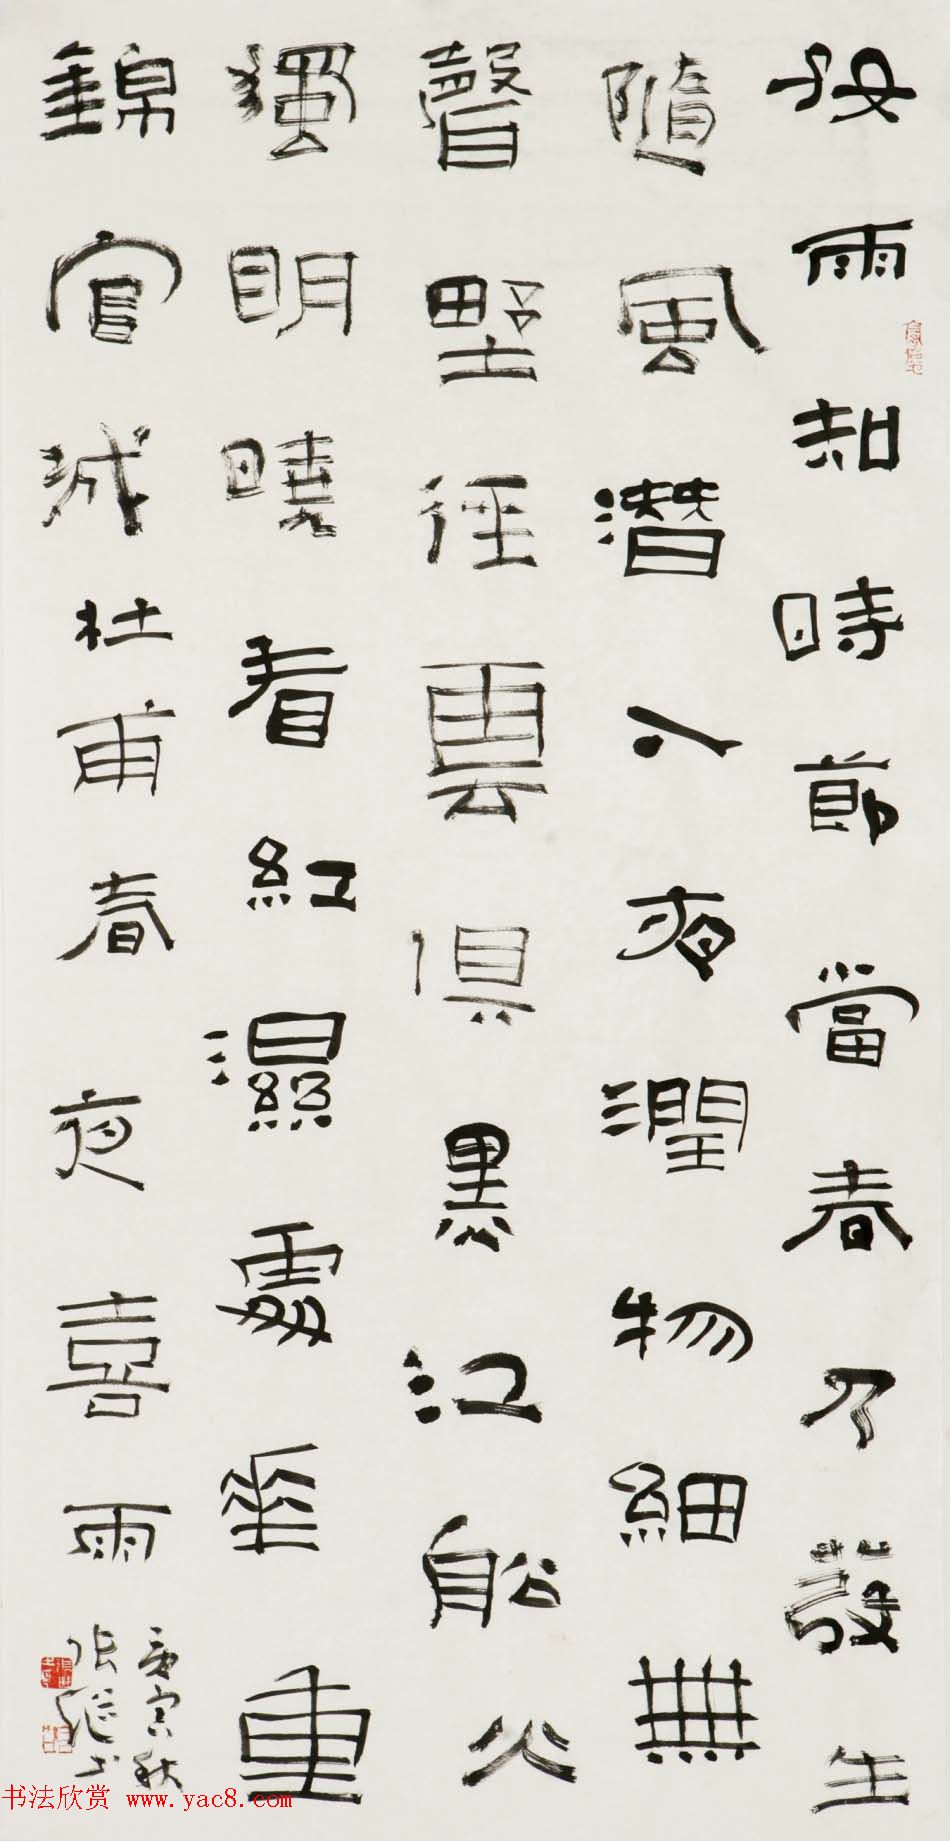 好雨知時節當春乃發生
隨風潛入夜潤物細無
聲野徑雲俱黑江船火
獨明曉看紅濕處華重
錦官城杜甫春夜喜雨
庚寅秋
張繼书
书法欣赏 www.yac8.com